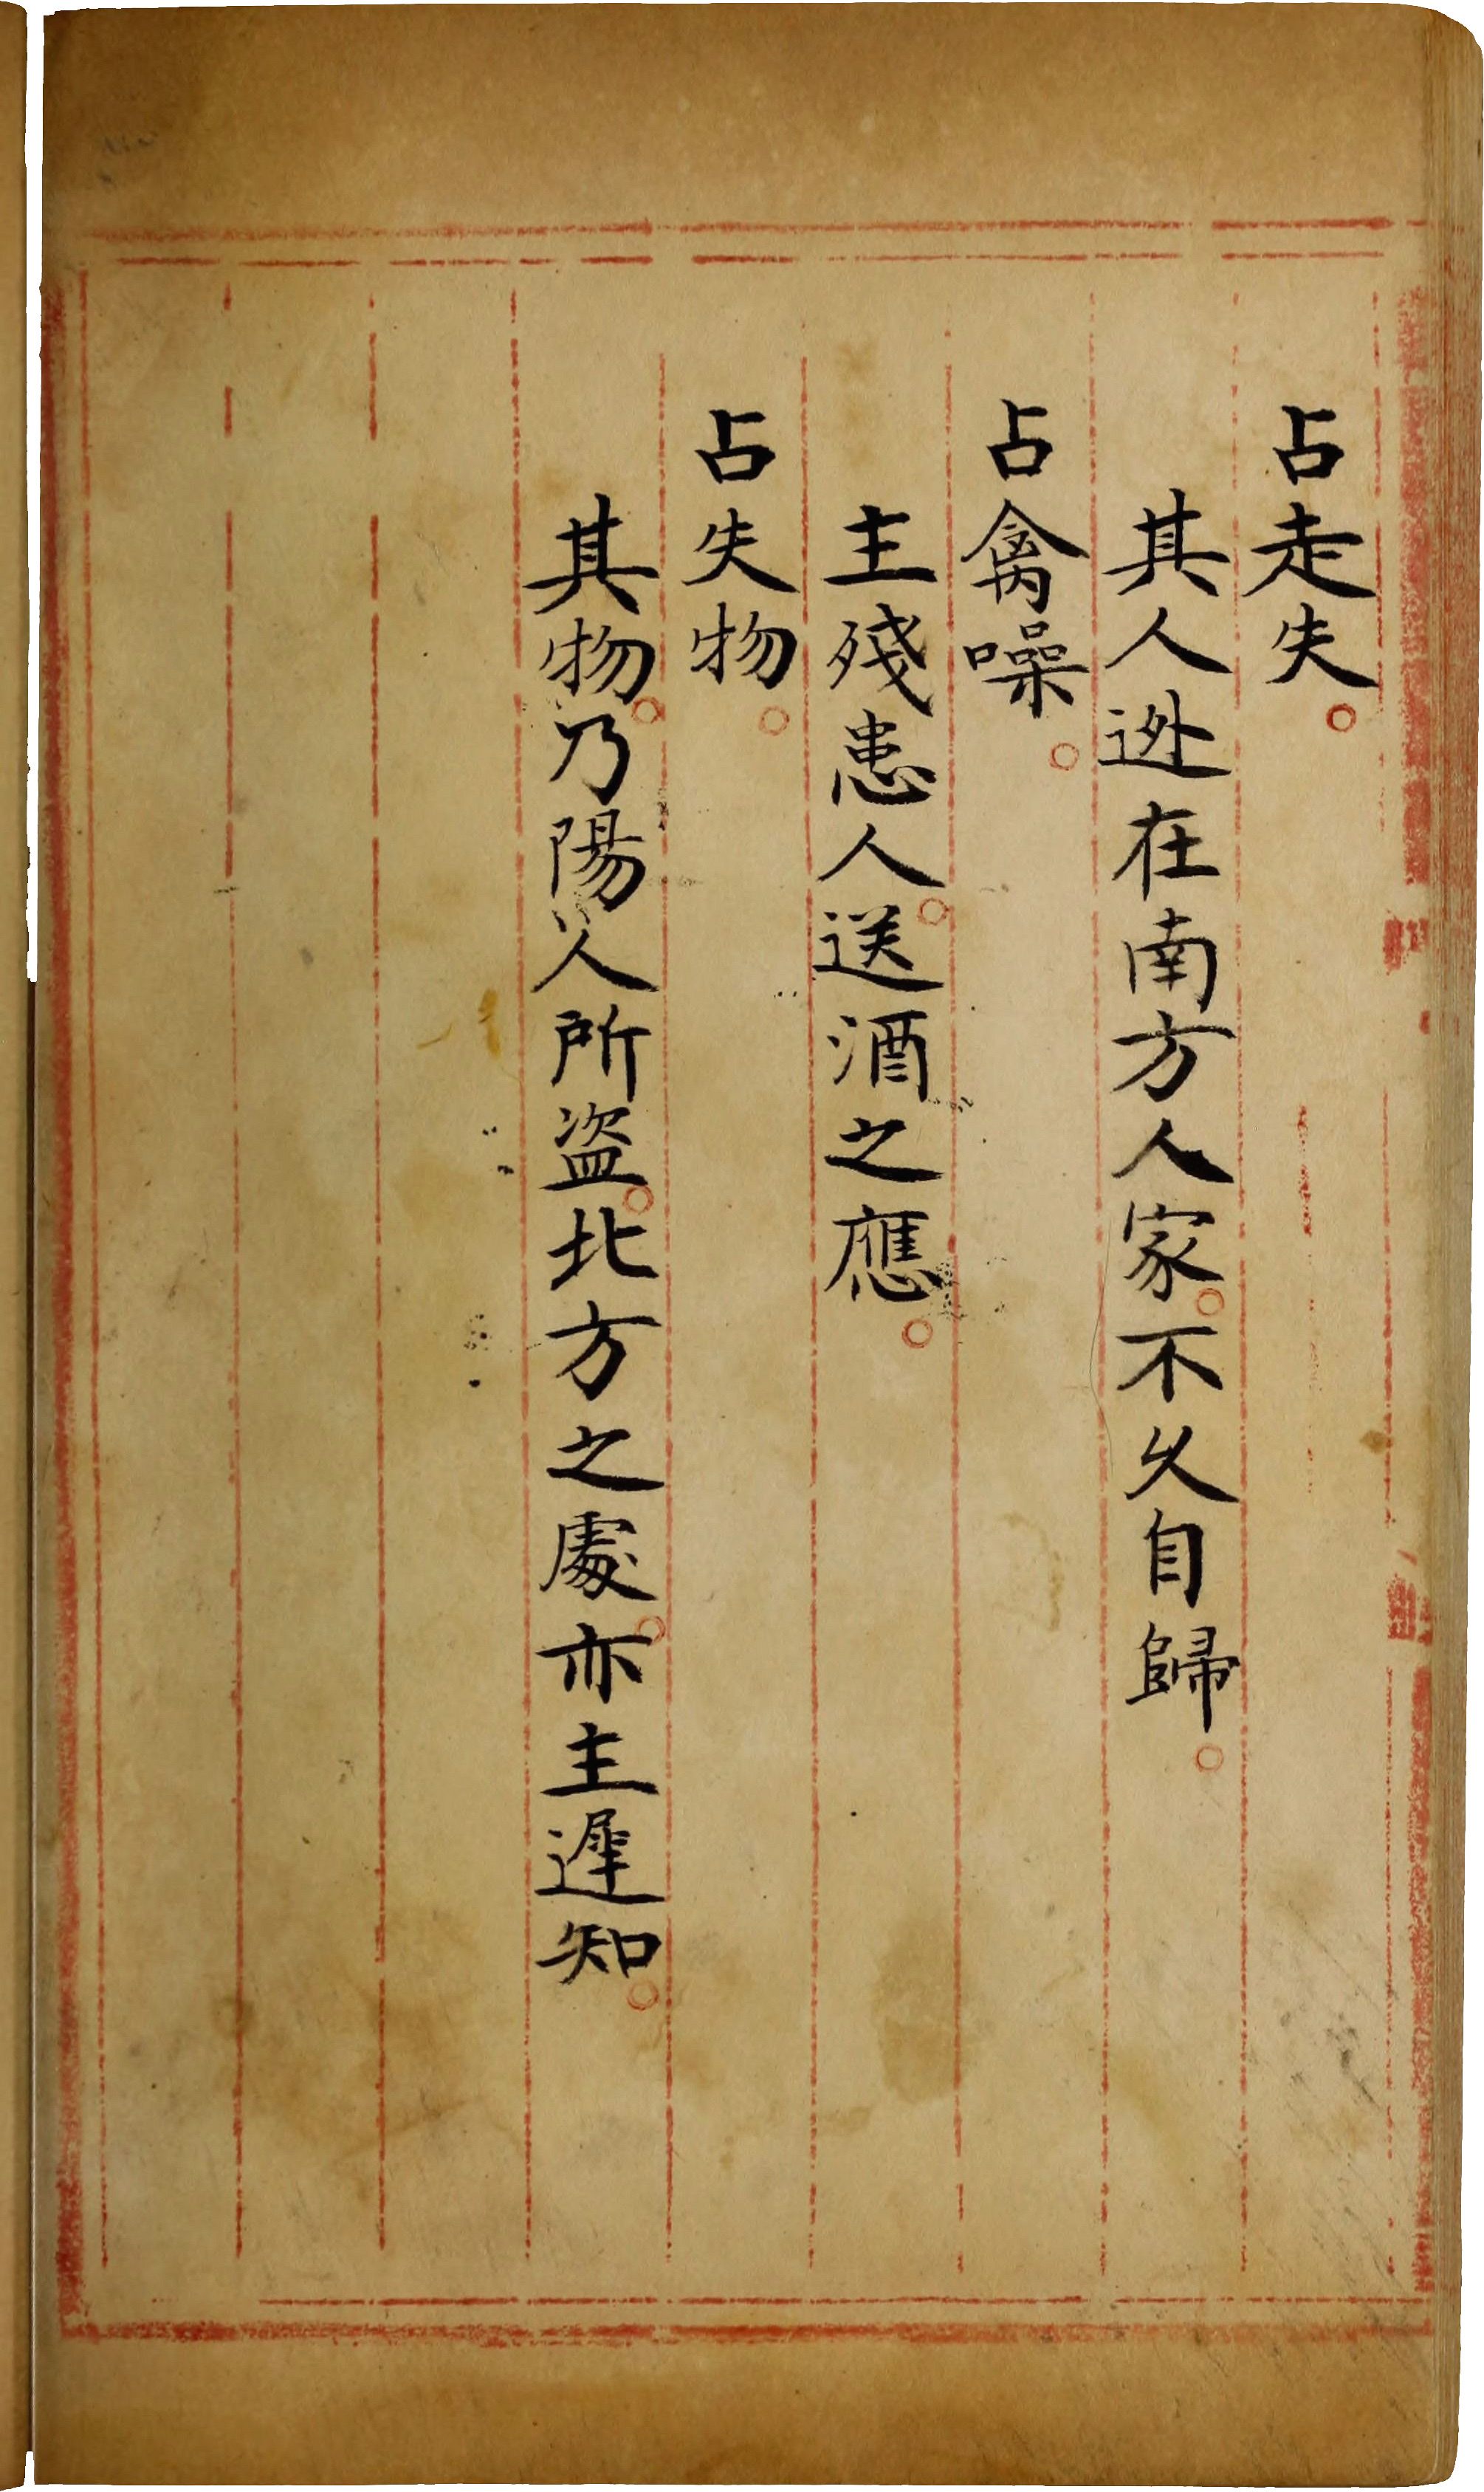 占走失。
其人逃在南方人家。不久自歸。
占禽噪。
主殘患人。送酒之應。
占失物。
其物。乃陽人所盜。北方之處。亦主遲知。